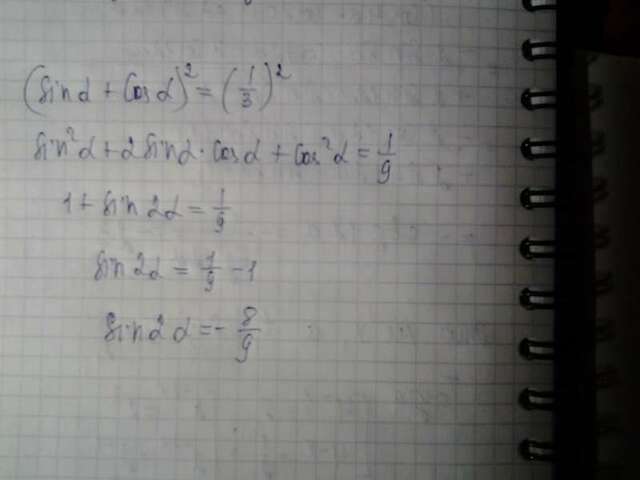 (sin α + cos α)² = (1/3)²
sin²α + 2 sin α · cos α + cos²α = 1/9
1 + sin 2α = 1/9
sin 2α = 1/9 - 1
sin 2α = - 8/9